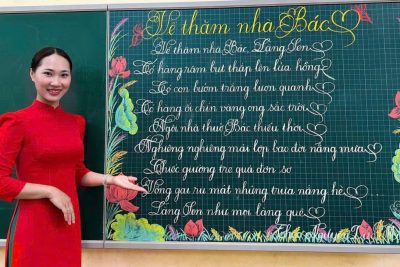 Về thăm nhà Bác
Về thăm nhà Bác, Làng Sen
Có hàng râm bụt thắp lên lửa hồng
Có con bướm trắng lượn quanh
Có hàng ổi chín vàng ong sắc trời
Ngôi nhà thuở Bác thiếu thời
Nghiêng nghiêng mái lợp bao đời nắng mưa
Chiếc giường tre quá đơn sơ
Võng gai ru mát những trưa nắng hè...
Làng Sen như mọi làng quê